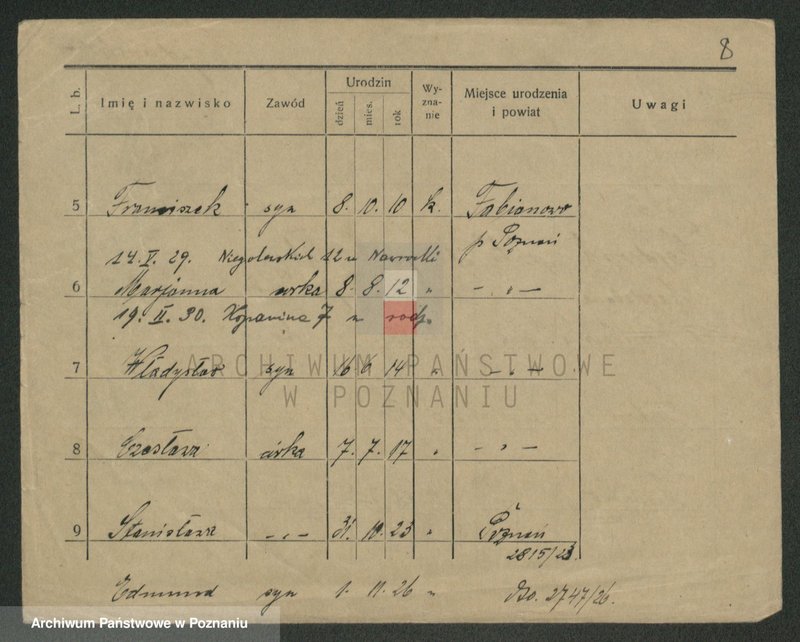 8
L. b. Imię i nazwisko Zawód Urodzin dzień mies. rok Wy-zna-nie Miejsce urodzenia i powiat Uwagi
5 Franciszek syn 8. 10. 10 k. Fabianowo
p Poznań
14. V. 29. Niegolewskich 12 u Nawrocki
6 Marjanna córka 8. 8. 12 " — " —
19. II. 30. Kopanina 7 u rodz.
7 Władysław syn 16 6 14 " — " —
ARCHIWUM PAŃSTWOWE
W POZNANIU
8 Czesława córka 7. 7. 17 " — " —
9 Stanisława — " — 31. 10. 23 " Poznań
2815/23
Edmund syn 1. 11. 26 " 2747/26.
Archiwum Państwowe w Poznaniu